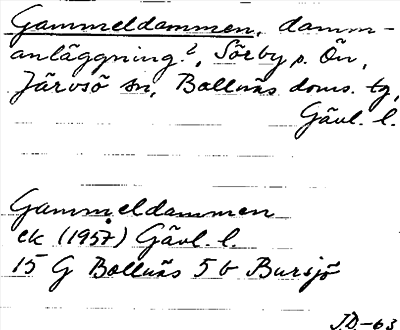 Gammeldammen, damm-
anläggning?, Sörby s. Ön,
Järvsö sn, Bollnäs doms. tg,
Gävl. l.
Gammeldammen
ek (1957) Gävl. l.
15 G Bollnäs 5 b Bursjö
J.D.-63